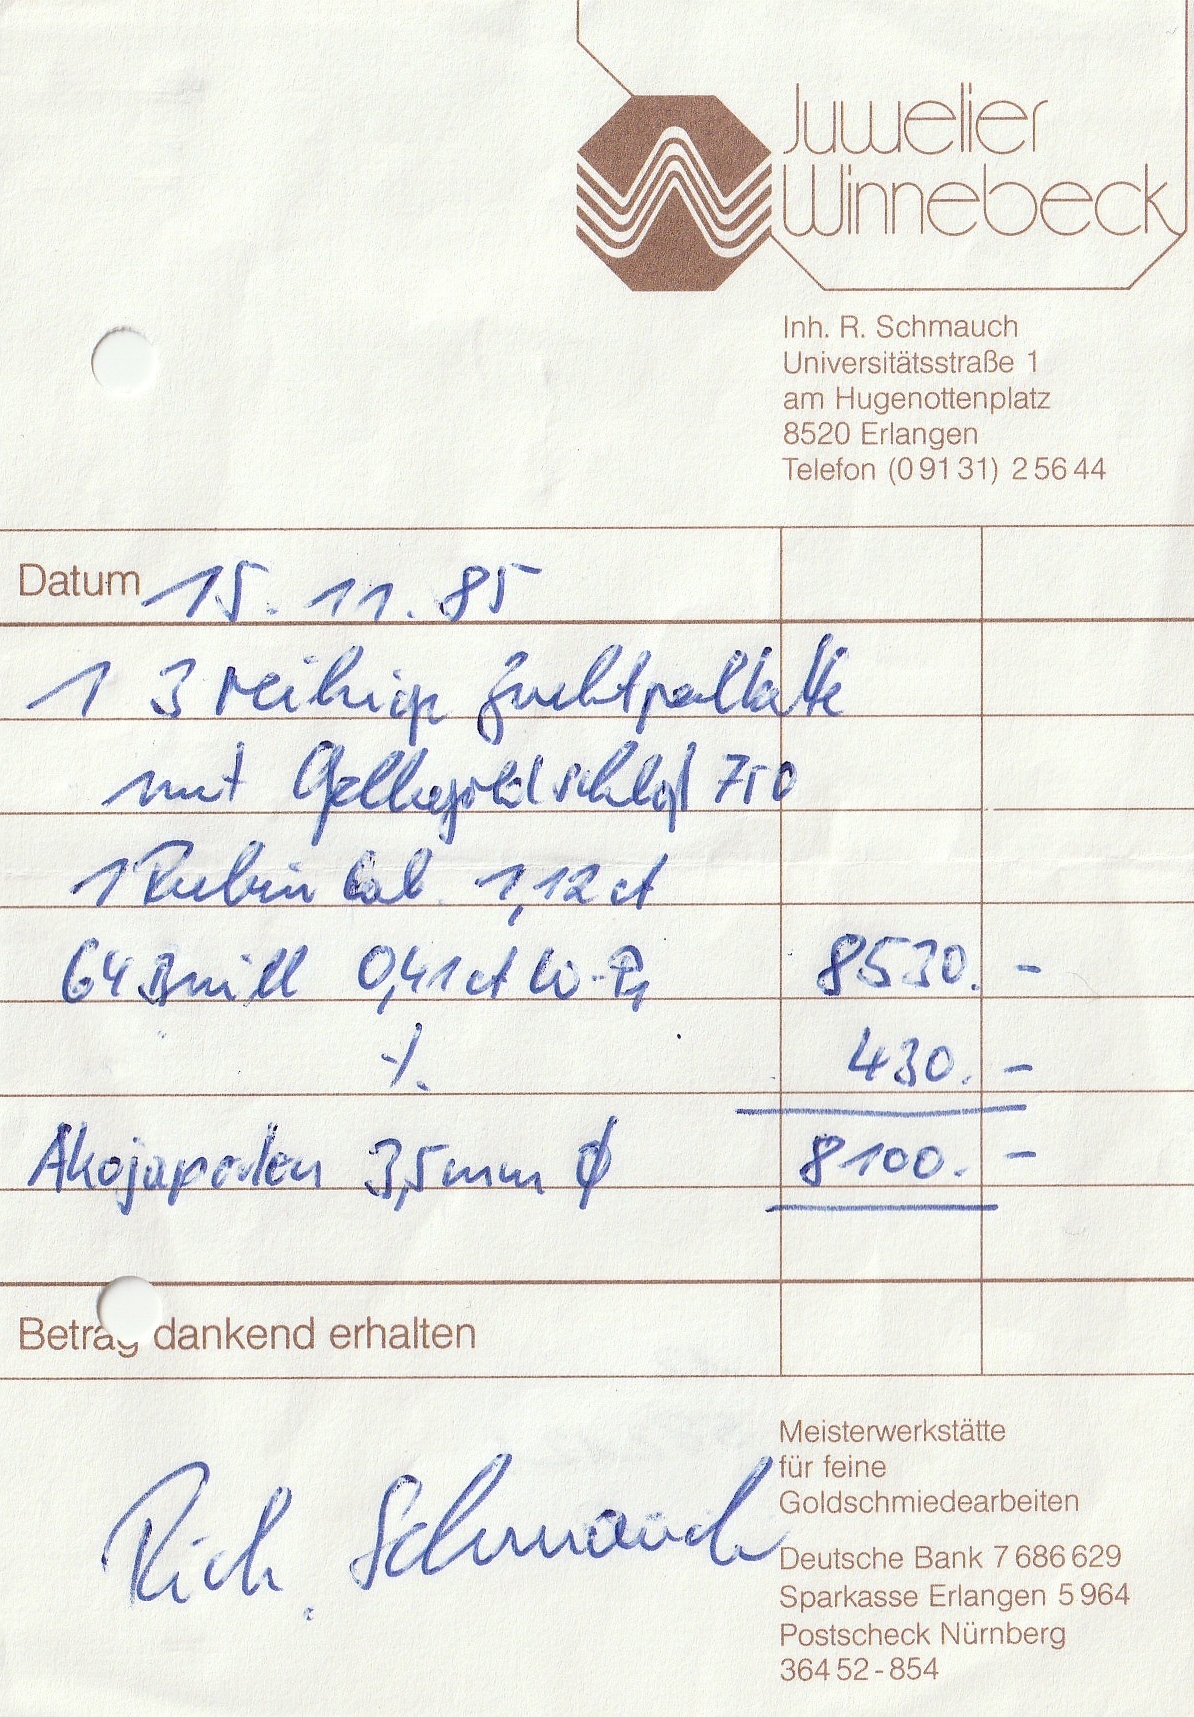 Juwelier
Winnebeck
Inh. R. Schmauch
Universitätsstraße 1
am Hugenottenplatz
8520 Erlangen
Telefon (0 91 31) 2 56 44
Datum 15. 11. 85
1 3 reihige Zuchtperlkette
mit Gelbgoldschloß 750
1 Rubin cab. 1,12 ct
64 Brill 0,41 ct W-P1 8530.-
-/. 430.-
Akojaperlen 3,5 mm ϕ 8100.-
Betrag dankend erhalten
Rich. Schmauch
Meisterwerkstätte
für feine
Goldschmiedearbeiten
Deutsche Bank 7 686 629
Sparkasse Erlangen 5 964
Postscheck Nürnberg
364 52 - 854